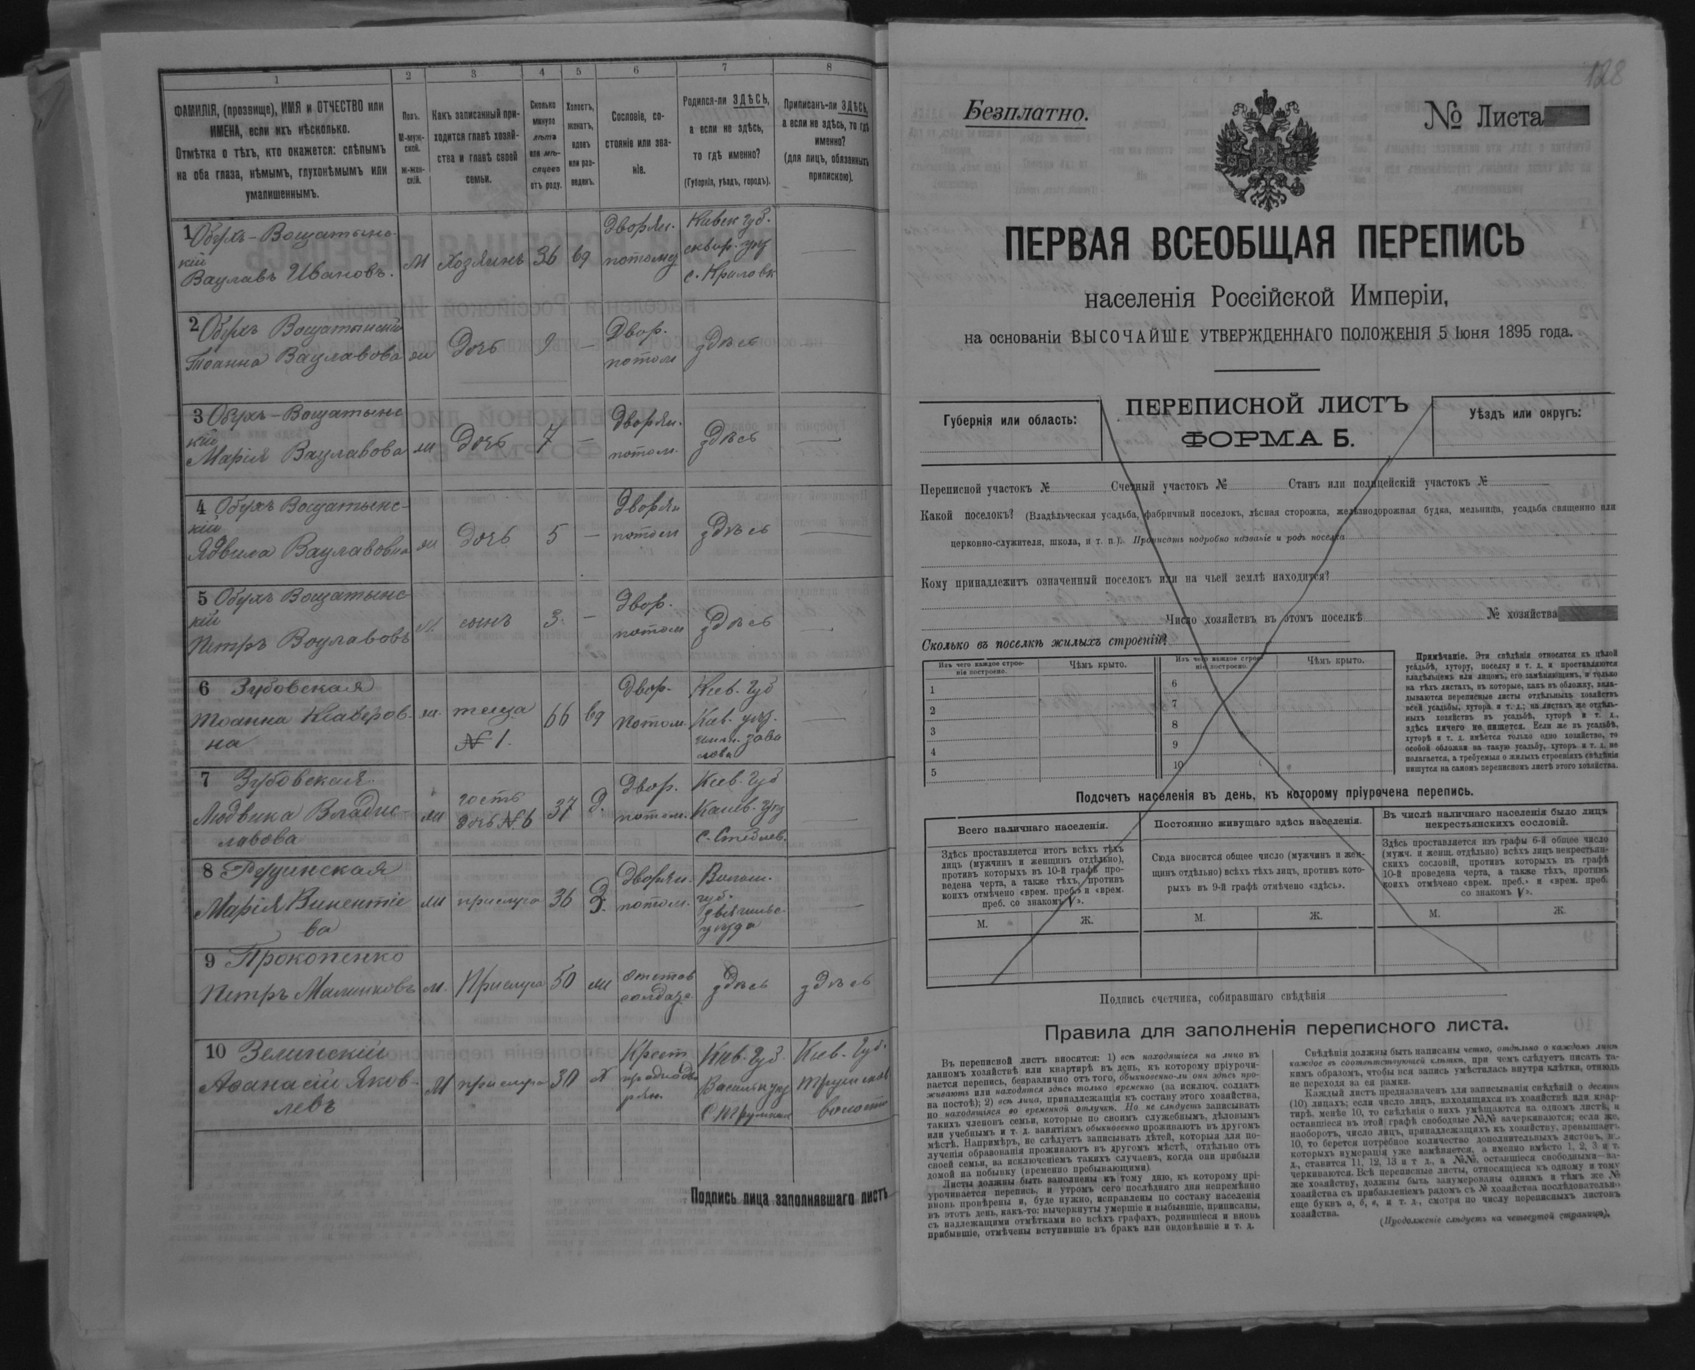 1
2
3
4
5
6
7
8
ФАМИЛІЯ, (прозвище), ИМЯ и ОТЧЕСТВО или
ИМЕНА, если ихъ нѣсколько.
Отмѣтка о тѣхъ, кто окажется: слѣпымъ
на оба глаза, нѣмымъ, глухонѣмымъ или
умалишеннымъ.
Полъ.
М-муж-
ской.
Ж-жен-
скій.
Какъ записанный при-
ходится главѣ хозяй-
ства и главѣ своей
семьи.
Сколько
минуло
лѣтъ
или мѣ-
сяцевъ
отъ роду.
Холостъ,
женатъ,
вдовъ
или раз-
веденъ.
Сословіе, со-
стояніе или зва-
ніе.
Родился-ли ЗДѢСЬ,
а если не здѣсь,
то гдѣ именно?
(Губернія, уѣздъ, городъ).
Приписанъ-ли ЗДѢСЬ,
а если не здѣсь, то гдѣ
именно?
(для лицъ, обязанныхъ
припискою).
1 Обухъ-Вощатынс-
кій
Вацлавъ Ивановъ.
М
Хозяинъ
36
вд
Дворян.
потом
Киевск губ.
сквир. уѣз
2 Обухъ Вощатынскій
Іоанна Вацлавова
ж
дочь
9
—
Двор.
потом
здѣсь
3 Обухъ-Вощатынс
кій
Марія Вацлавова
ж
дочь
7
—
Дворян.
потом.
здѣсь
—
4 Обухъ Вощатынс-
кій
Ядвига Вацлавовна
ж
дочь
5
—
Дворян
потом
здѣсь
—
5 Обухъ Вощатынс
кій
Петръ Вацлавовъ
М.
сынъ
3.
—
Двор.
потом
здѣсь
—
6 Зубовская
Іоанна Ксавѣров-
на
ж.
теща
№ 1.
66
вд
Двор-
потом.
Кіев. Губ
7 Зубовская
Людвика Владис-
лавова
ж
гость
дочь № 6
37
Д.
Двор.
потом.
Кіев. Губ
Канев. уѣз
8
Марія Викентіе
ва
ж
прислуга
36
Дворян.
потом.
губ.
уѣзда
9 Прокопенко
Петръ
М.
Прислуга
50
ж
отстав
солдатъ
здѣсь
здѣсь
10 Зелинскій
Афанасій Яков-
левъ
М
прислуга
30
Х
Крест
Кіев. Губ.
Кіев. Губ.
волости
Подпись лица заполнявшаго листъ
128
Безплатно.
№ Листа
ПЕРВАЯ ВСЕОБЩАЯ ПЕРЕПИСЬ
населенія Россійской Имперіи,
на основаніи ВЫСОЧАЙШЕ УТВЕРЖДЕННАГО ПОЛОЖЕНІЯ 5 Іюня 1895 года.
Губернія или область:
ПЕРЕПИСНОЙ ЛИСТЪ
ФОРМА Б.
Уѣздъ или округъ:
Переписной участокъ № Счетный участокъ № Станъ или полицейскій участокъ №
Какой поселокъ? (Владѣльческая усадьба, фабричный поселокъ, лѣсная сторожка, желѣзнодорожная будка, мельница, усадьба священно или
церковно-служителя, школа, и т. п.). Прописать подробно названіе и родъ поселка
Кому принадлежитъ означенный поселокъ или на чьей землѣ находится?
Число хозяйствъ въ этомъ поселкѣ № хозяйства
Сколько въ поселкѣ жилыхъ строеній?
Изъ чего каждое строе-
ніе построено.
Чѣмъ крыто.
Изъ чего каждое строе-
ніе построено.
Чѣмъ крыто.
1
2
3
4
5
6
7
8
9
10
Примѣчаніе. Эти свѣдѣнія относятся къ цѣлой
усадьбѣ, хутору, поселку и т. д. и проставляются
владѣльцемъ или лицомъ, его замѣняющимъ, и только
на тѣхъ листахъ, въ которые, какъ въ обложку, вкла-
дываются переписные листы отдѣльныхъ хозяйствъ
всей усадьбы, хутора и т. д.; на листахъ же отдѣль-
ныхъ хозяйствъ въ усадьбѣ, хуторѣ и т. д.,
здѣсь ничего не пишется. Если же въ усадьбѣ,
хуторѣ и т. д. имѣется только одно хозяйство, то
особой обложки на такую усадьбу, хуторъ и т. д. не
полагается, а требуемыя о жилыхъ строеніяхъ свѣдѣнія
пишутся на самомъ переписномъ листѣ этого хозяйства.
Подсчетъ населенія въ день, къ которому пріурочена перепись.
Всего наличнаго населенія.
Здѣсь проставляется итогъ всѣхъ тѣхъ
лицъ (мужчинъ и женщинъ отдѣльно),
противъ которыхъ въ 10-й графѣ про-
ведена черта, а также тѣхъ, противъ
коихъ отмѣчено «врем. преб.» и «врем.
преб. со знакомъ V».
М.
Ж.
Постоянно живущаго здѣсь населенія.
Сюда вносится общее число (мужчинъ и жен-
щинъ отдѣльно) всѣхъ тѣхъ лицъ, противъ кото-
рыхъ въ 9-й графѣ отмѣчено «здѣсь».
М.
Ж.
Въ числѣ наличнаго населенія было лицъ
некрестьянскихъ сословій.
Здѣсь проставляется изъ графы 6-й общее число
(мужч. и женщ. отдѣльно) всѣхъ лицъ некрестьян-
скихъ сословій, противъ которыхъ въ графѣ
10-й проведена черта, а также тѣхъ, противъ
коихъ отмѣчено «врем. преб.» и «врем. преб.
со знакомъ V».
М.
Ж.
Подпись счетчика, собиравшаго свѣдѣнія
Правила для заполненія переписного листа.
Въ переписной листъ вносятся: 1) всѣ находящіеся на лицо въ
данномъ хозяйствѣ или квартирѣ въ день, къ которому пріурочи-
вается перепись, безразлично отъ того, обыкновенно-ли они здѣсь про-
живаютъ или находятся здѣсь только временно (за исключ. солдатъ
на постоѣ); 2) всѣ лица, принадлежащія къ составу этого хозяйства,
но находящіяся во временной отлучкѣ. Но не слѣдуетъ записывать
такихъ членовъ семьи, которые по своимъ служебнымъ, дѣловымъ
или учебнымъ и т. д. занятіямъ обыкновенно проживаютъ въ другомъ
мѣстѣ. Напримѣръ, не слѣдуетъ записывать дѣтей, которыя для по-
лученія образованія проживаютъ въ другомъ мѣстѣ, отдѣльно отъ
своей семьи, за исключеніемъ такихъ случаевъ, когда они прибыли
домой на побывку (временно пребывающими).
Листы должны быть заполнены къ тому дню, къ которому прі-
урочивается перепись, и утромъ сего послѣдняго дня непремѣнно
вновь провѣрены и, буде нужно, исправлены по составу населенія
въ этотъ день, какъ-то: вычеркнуты умершіе и выбывшіе, приписаны,
съ надлежащими отмѣтками во всѣхъ графахъ, родившіеся и вновь
прибывшіе, отмѣчены вступившіе въ бракъ или овдовѣвшіе и т. д.
Свѣдѣнія должны быть написаны четко, отдѣльно о каждомъ лицѣ
каждое въ соотвѣтствующей клѣткѣ, при чемъ слѣдуетъ писать та-
кимъ образомъ, чтобы вся запись умѣсталась внутри клѣтки, отнюдь
не переходя за ея рамки.
Каждый листъ предназначенъ для записыванія свѣдѣній о десяти
(10) лицахъ; если число лицъ, находящихся въ хозяйствѣ или квар-
тирѣ, менѣе 10, то свѣдѣнія о нихъ умѣщаются на одномъ листѣ, и
оставшіеся въ этой графѣ свободные №№ зачеркиваются; если же,
наоборотъ, число лицъ, принадлежащихъ къ хозяйству, превышаетъ
10, то берется потребное количество дополнительныхъ листовъ, въ
которыхъ нумерація уже измѣняется, а именно вмѣсто 1, 2, 3 и т.
д., ставится 11, 12, 13 и т д., а №№, оставшіеся свободными—за-
черкиваются. Всѣ переписные листы, относящіеся къ одному и тому
же хозяйству, должны быть занумерованы однимъ и тѣмъ же №
хозяйства съ прибавленіемъ рядомъ съ № хозяйства послѣдовательно
еще буквъ а, б, в, и т. д., смотря по числу переписныхъ листовъ
хозяйства.
(Продолженіе слѣдуетъ на четвертой страницѣ).